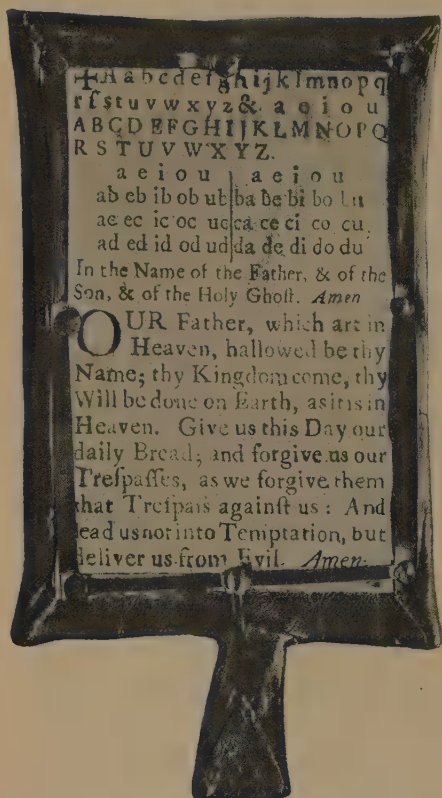 ✠Aabcdefghijklmnopq
rſstuvwxyz& aeiou
ABCDEFGHIJKLMNOPQ
RSTUVWXYZ.
a e i o u | a e i o u
ab eb ib ob ub | ba be bi bo bu
ac ec ic oc uc | ca ce ci co cu
ad ed id od ud | da de di do du
In the Name of the Father, & of the
Son, & of the Holy Ghoſt. Amen
OUR Father, which art in
Heaven, hallowed be thy
Name; thy Kingdom come, thy
Will be done on Earth, as it is in
Heaven. Give us this Day our
daily Bread; and forgive us our
Treſpaſſes, as we forgive them
that Treſpaſs againſt us: And
lead us not into Temptation, but
deliver us from Evil. Amen.